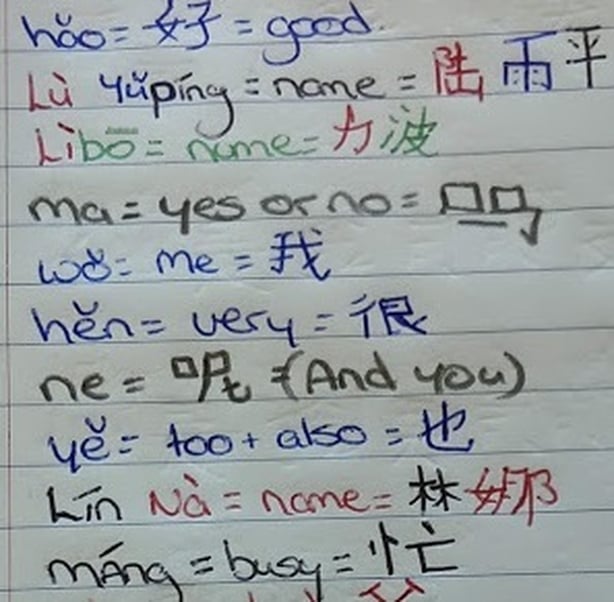 hǎo = 好 = good.
Lù Yǔpíng = name = 陆 雨 平
Lìbō = name = 力波
ma = yes or no = 吗
wǒ = me = 我
hěn = very = 很
ne = 呢 = (And you)
yě = too + also = 也
Lín Nà = name = 林娜
máng = busy = 忙